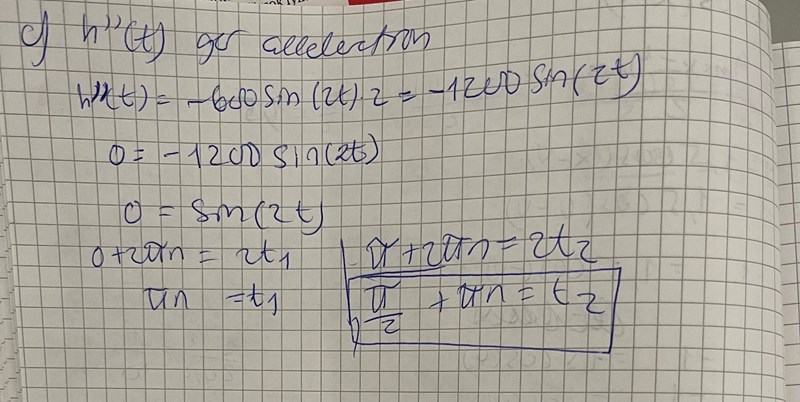 c) h''(t) ger acceleration
h''(t) = -600 sin(2t)·2 = -1200 sin(2t)
0 = -1200 sin(2t)
0 = sin(2t)
0+2πn = 2t1
πn = t1
π+2πn = 2t2
π/2 + πn = t2